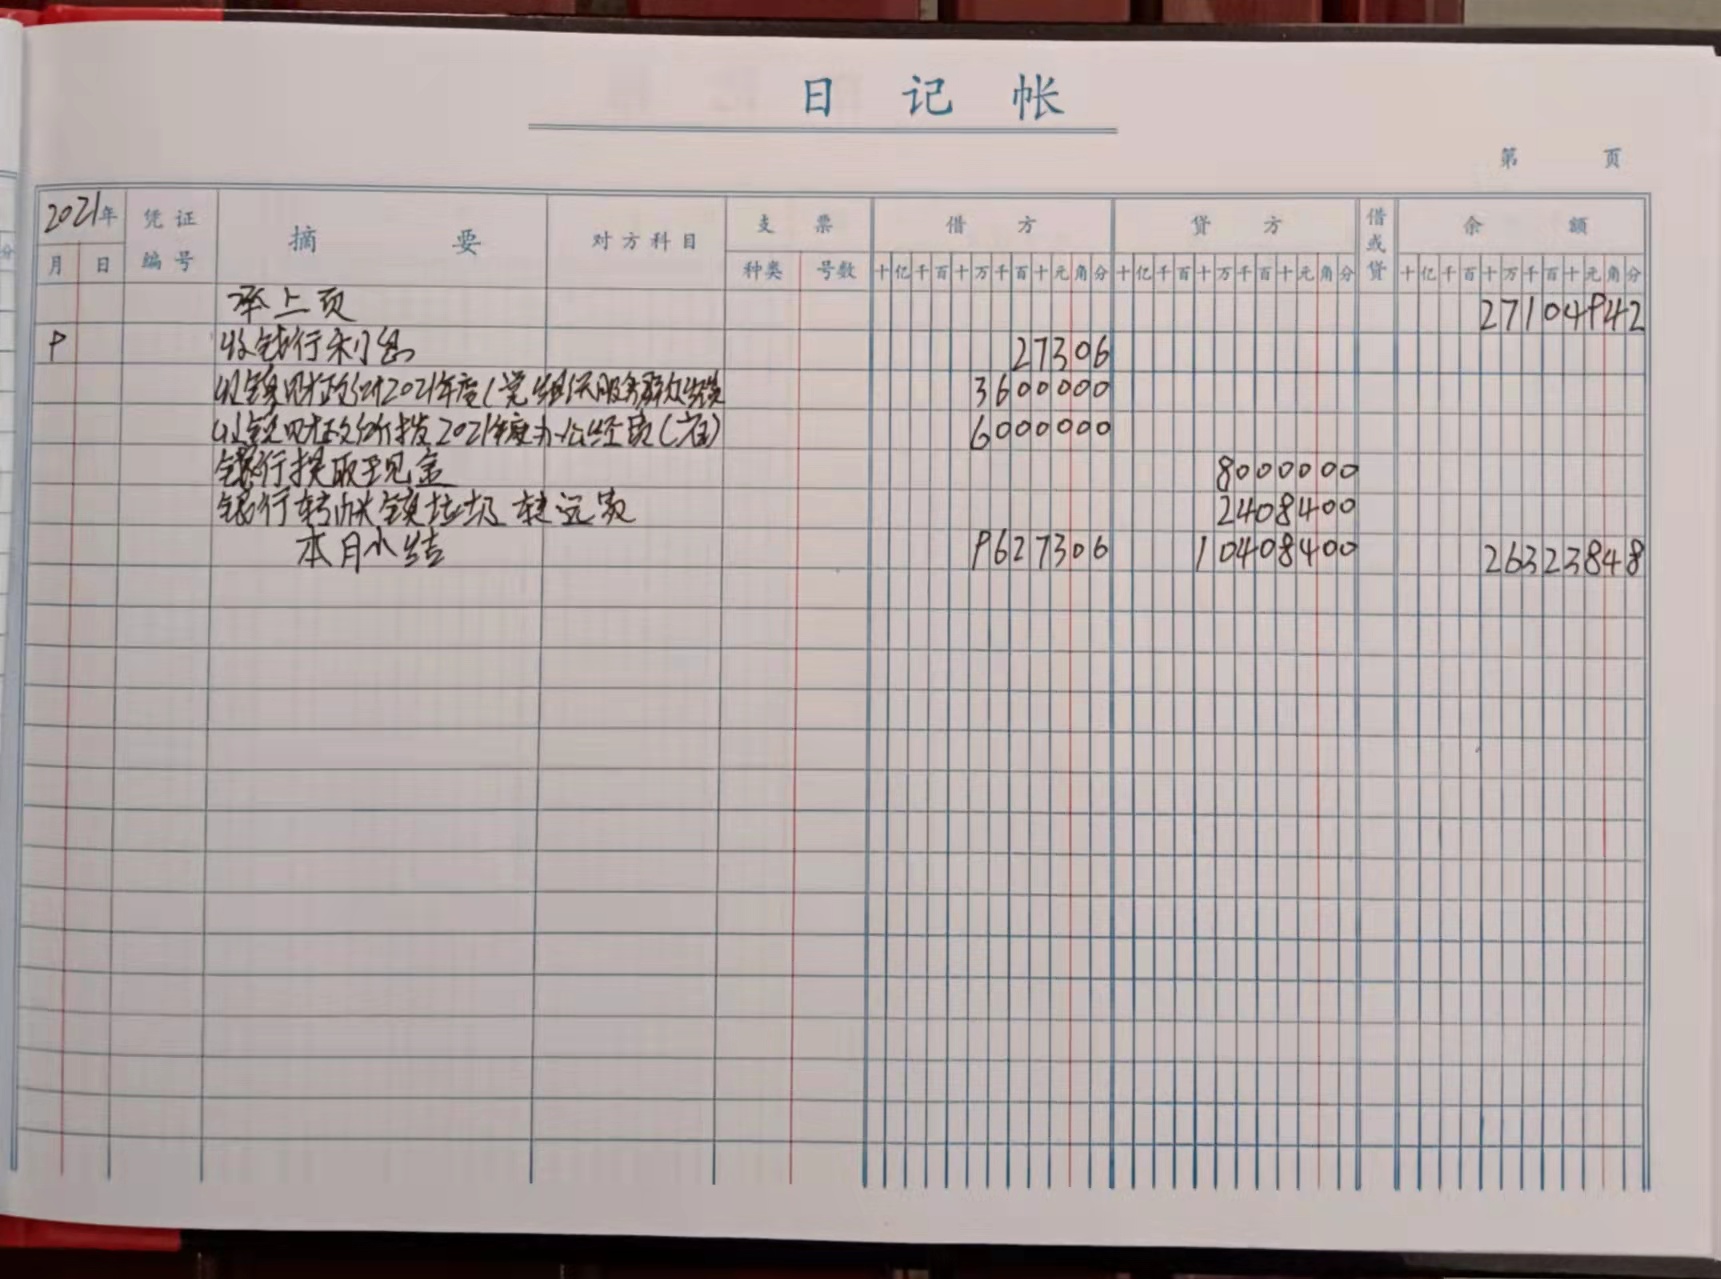 日记帐
第 页
2021年 凭证编号 摘要 对方科目 支票 借方 贷方 借或贷 余额
月 日 种类 号数 十亿千百十万千百十元角分 十亿千百十万千百十元角分 十亿千百十万千百十元角分
承上页 27104942
9 收银行利息 27306
收镇财政付2021年度(党组织服务群众经费 3600000
收镇财政所拨2021年度办公经费( ) 6000000
银行提取现金 8000000
银行转 镇垃圾转运费 2408400
本月小结 9627306 10408400 26323848
分